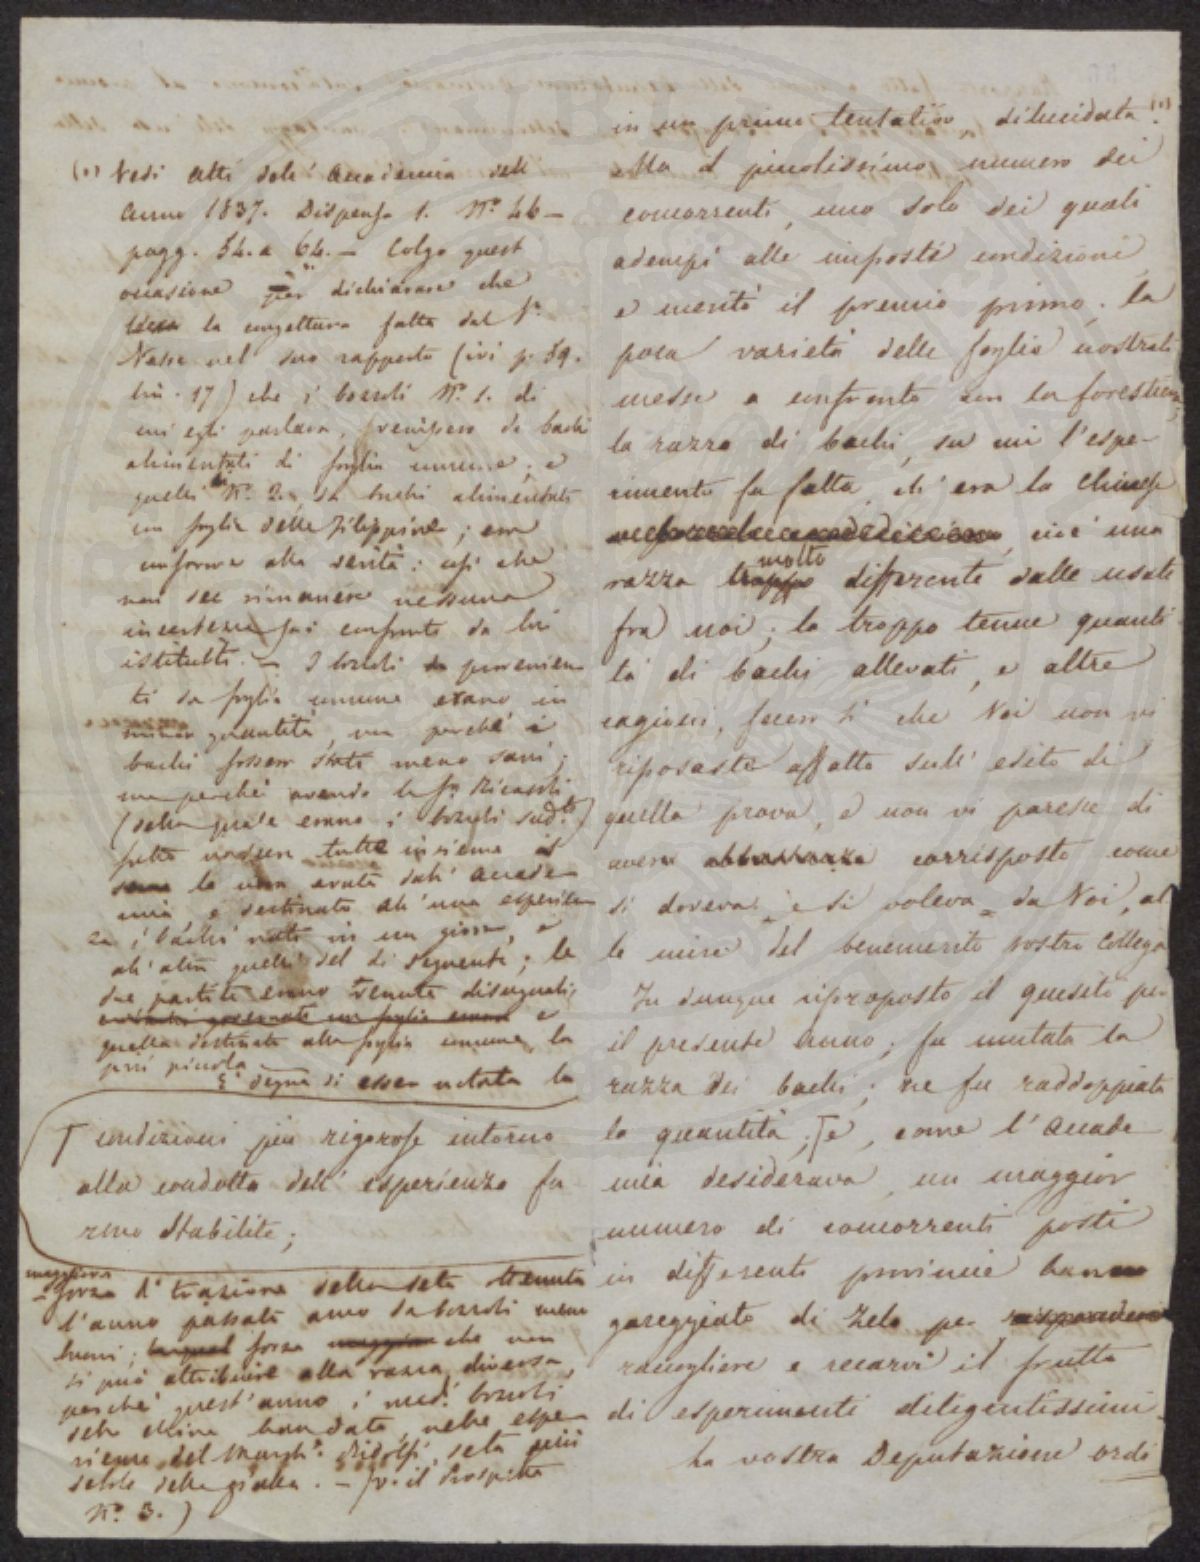 in un primo tentativo dilucidata (1).
Ma il piccolissimo numero dei
concorrenti, uno solo dei quali
adempì alle imposte condizioni
e meritò il premio primo; la
poca varietà delle foglie nostrali
messe a confronto con la forestiera;
la razza di bachi, su cui l'espe-
rimento fu fatta, ch'era la Chinese
cioè una
razza molto differente dalle usate
fra noi; la troppo tenue quanti
tà di bachi allevati, e altre
cagioni, fecer sì che Voi non vi
riposaste affatto sull' esito di
quella prova, e non vi paresse di
avere abbastanza corrisposto come
si doveva e si voleva da Voi, al
le mire del benemerito vostro Collega
Fu dunque riproposto il quesito per
il presente anno; fu mutata la
razza dei bachi; ne fu raddoppiata
la quantità; e, come l'Accade
mia desiderava, un maggior
numero di concorrenti posti
in differenti provincie hanno
gareggiato di zelo per
raccogliere e recarvi il frutto
di esperimenti diligentissimi.
La vostra Deputazione ordi
(1) Vedi Atti dell' Accademia dell
Anno 1837. Dispensa 1. N.º 46 –
pagg. 54. a 64. – Colgo quest
occasione per dichiarare che
la congettura fatta dal S.r
nel suo rapporto (ivi p. 59.
lin. 17) che i bozzoli N.º 1. di
cui egli parlava, venissero da bachi
alimentati di foglia comune; e
quelli N.º 2. da bachi alimentati
con foglia delle Filippine; era
conforme alla verità: così che
non dee rimanere nessuna
incertezza sui confronti da lui
istituiti. – I bozzoli provenien
ti da foglia comune erano in
minor quantità, non perchè i
bachi fossero stati meno sani;
ma perchè avendo la S.ra Ricasoli
(della quale erano i bozzoli sud.ti)
fatto nascere tutte insieme
le uova avute dall' Accade
mia, e destinato all'una esperien
za i bachi nati in un giorno, e
all' altra quelli del dì seguente; le
due partite erano venute disuguali,
e
quella destinata alla foglia comune, la
più piccola
È degna di esser notata la
maggiore
forza di trazione della seta ottenuta
l'anno passato anco da bozzoli meno
buoni; forza che non
si può attribuire alla razza diversa,
perchè quest'anno i med.i bozzoli
della China han dato, nelle espe
rienze del March.e Ridolfi, seta più
debole della gialla. – (V. il Prospetto
N.º 3.)
condizioni più rigorose intorno
alla condotta dell' esperienza fu
rono stabilite;